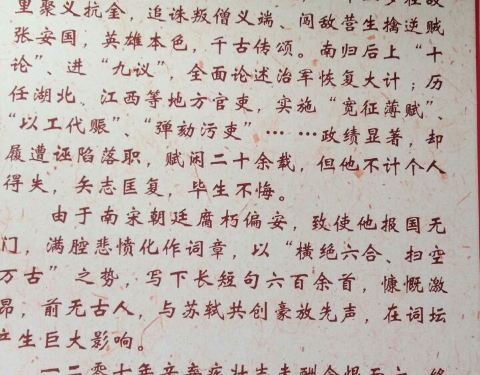 里聚义抗金，追诛叛僧义端、闯敌营生擒逆贼
张安国，英雄本色，千古传颂。南归后上“十
论”、进“九议”，全面论述治军恢复大计；历
任湖北、江西等地方官吏，实施“宽征薄赋”、
“以工代赈”、“弹劾污吏”……政绩显著，却
屡遭诬陷落职，赋闲二十余载，但他不计个人
得失，矢志匡复，毕生不悔。
由于南宋朝廷腐朽偏安，致使他报国无
门，满腔悲愤化作词章，以“横绝六合、扫空
万古”之势，写下长短句六百余首，慷慨激
昂，前无古人，与苏轼共创豪放先声，在词坛
产生巨大影响。
一二零七年辛弃疾壮志未酬含恨